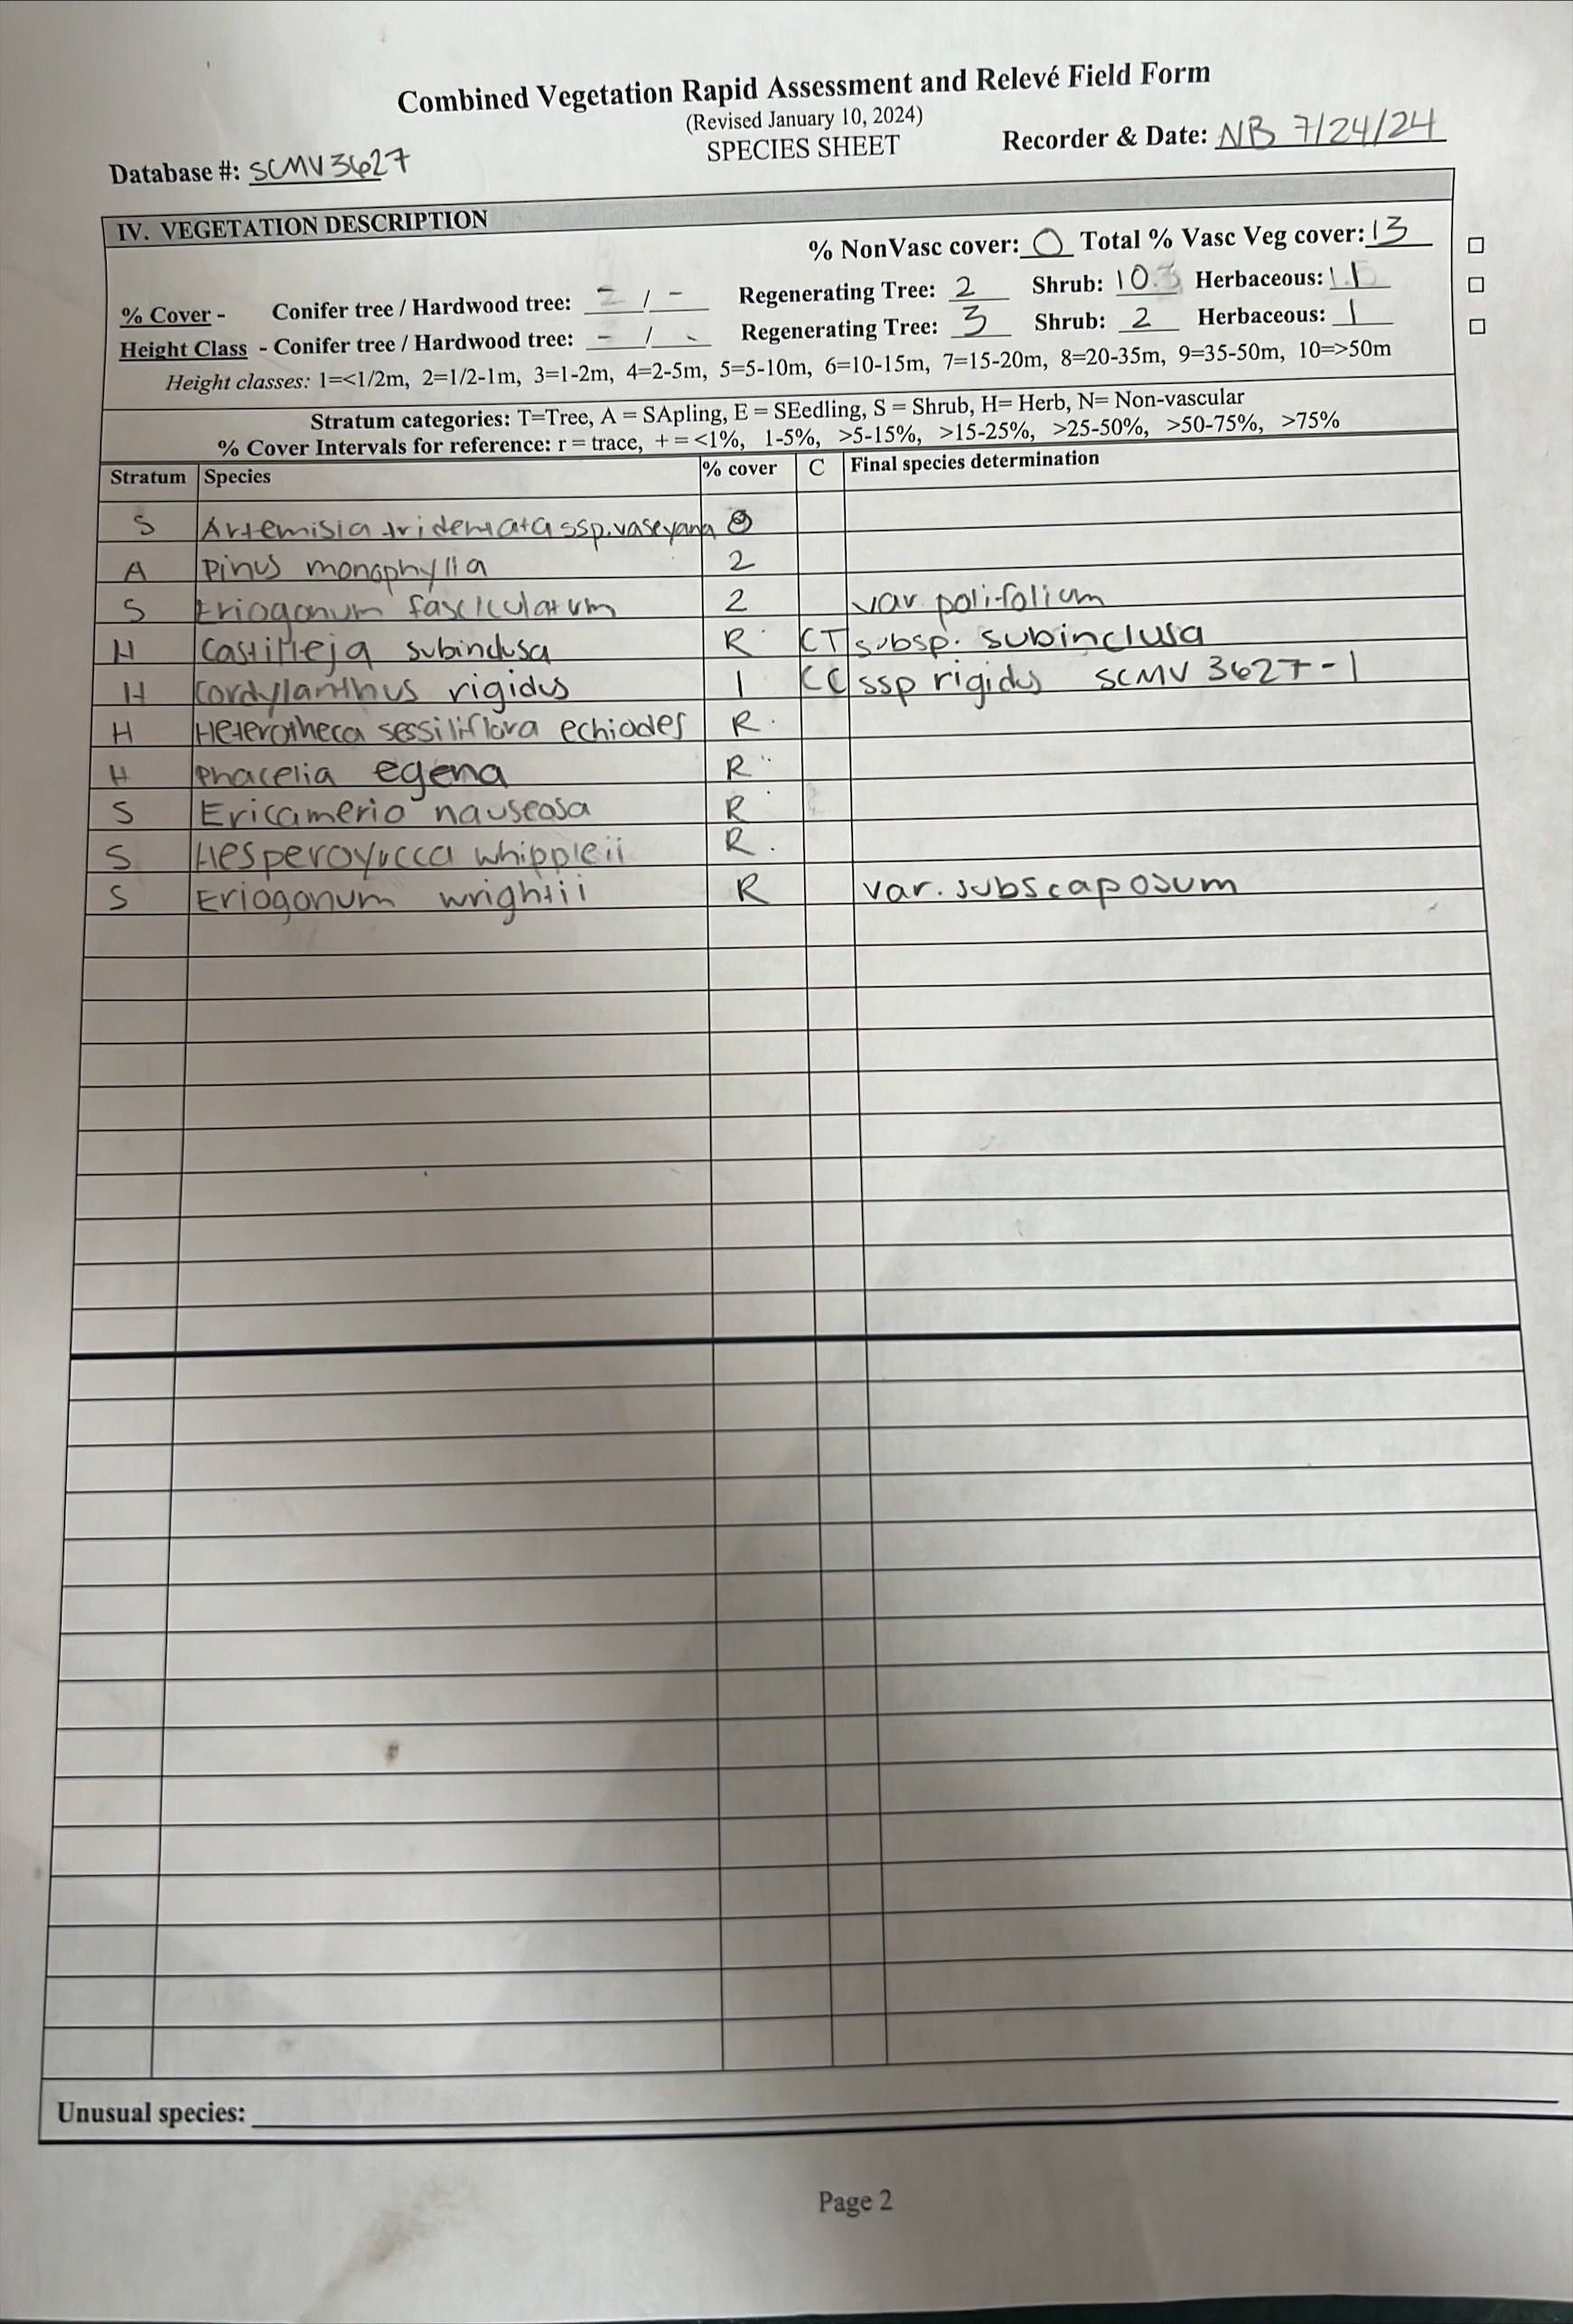 Combined Vegetation Rapid Assessment and Relevé Field Form
(Revised January 10, 2024)
Database #: SCMV3627 SPECIES SHEET Recorder & Date: NB 7/24/24
IV. VEGETATION DESCRIPTION
% NonVasc cover: 0 Total % Vasc Veg cover: 13
% Cover - Conifer tree / Hardwood tree: - / - Regenerating Tree: 2 Shrub: 10 Herbaceous: 1
Height Class - Conifer tree / Hardwood tree: - / - Regenerating Tree: 3 Shrub: 2 Herbaceous: 1
Height classes: 1=<1/2m, 2=1/2-1m, 3=1-2m, 4=2-5m, 5=5-10m, 6=10-15m, 7=15-20m, 8=20-35m, 9=35-50m, 10=>50m
Stratum categories: T=Tree, A = SApling, E = SEedling, S = Shrub, H= Herb, N= Non-vascular
% Cover Intervals for reference: r = trace, + = <1%, 1-5%, >5-15%, >15-25%, >25-50%, >50-75%, >75%
Stratum Species % cover C Final species determination
S Artemisia tridentata ssp. vaseyana
A Pinus monophylla 2
S Eriogonum fasciculatum 2 var. polifolium
H Castilleja subinclusa R CT subsp. subinclusa
H Cordylanthus rigidus 1 CC ssp rigidus SCMV 3627-1
H Heterotheca sessiliflora echiodes R
H Phacelia egena R
S Ericameria nauseosa R
S Hesperoyucca whippleii R
S Eriogonum wrightii R var. subscaposum
Unusual species:
Page 2